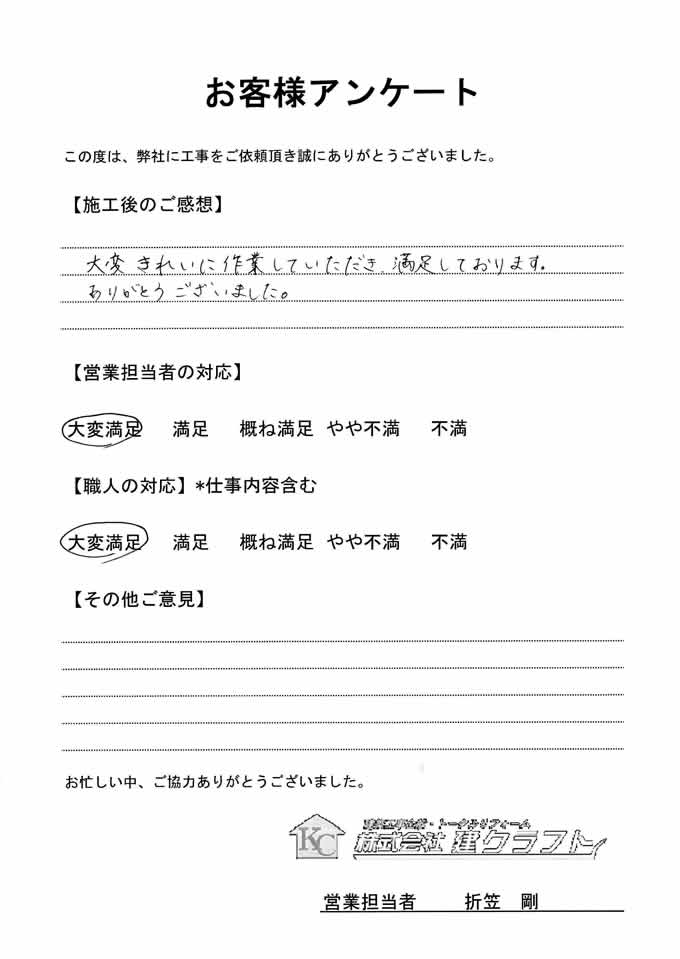 お客様アンケート
この度は、弊社に工事をご依頼頂き誠にありがとうございました。
【施工後のご感想】
大変きれいに作業していただき、満足しております。
ありがとうございました。
【営業担当者の対応】
大変満足 満足 概ね満足 やや不満 不満
【職人の対応】*仕事内容含む
大変満足 満足 概ね満足 やや不満 不満
【その他ご意見】
お忙しい中、ご協力ありがとうございました。
トータルリフォーム
KC 株式会社 建クラフト
営業担当者 折笠 剛